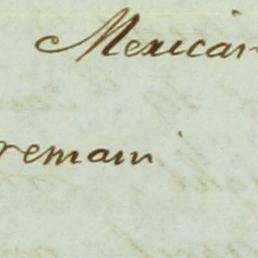 Mexican
remain